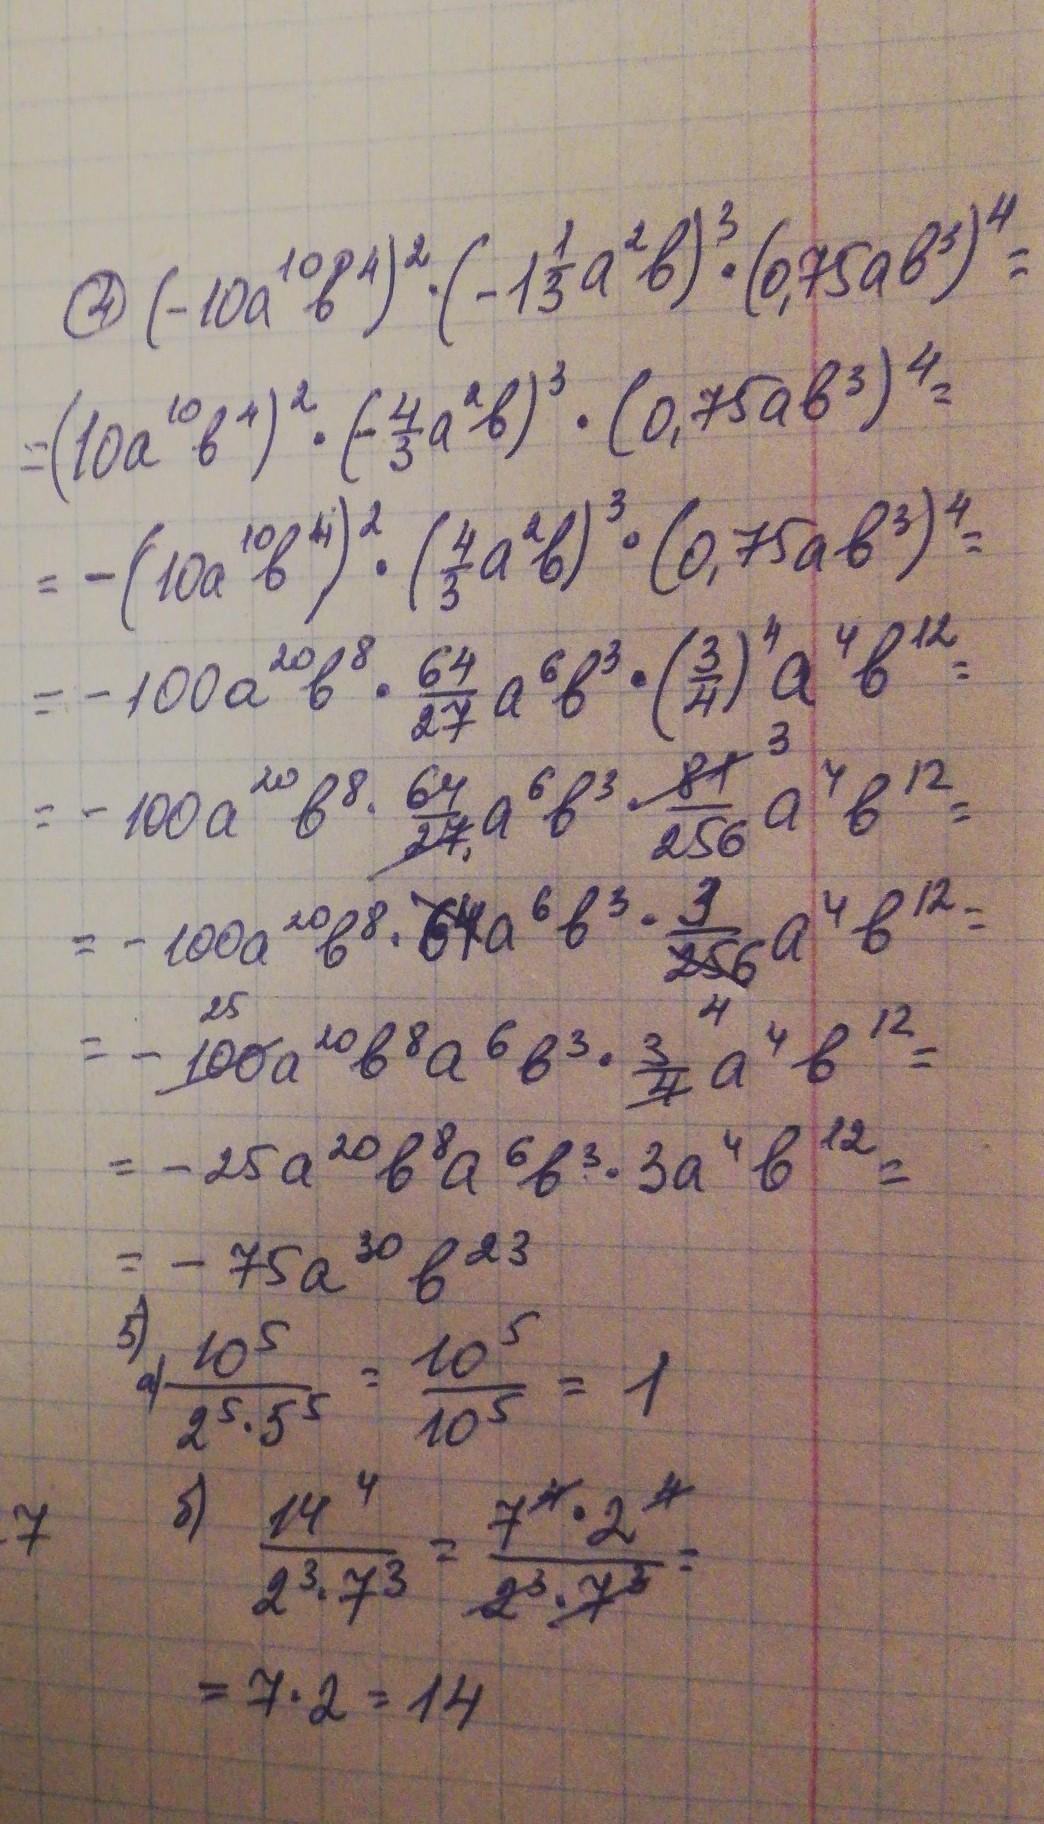 ④ (-10a¹⁰b⁴)² · (-1 1/3 a²b)³ · (0,75ab³)⁴ =
= (10a¹⁰b⁴)² · (-4/3 a²b)³ · (0,75ab³)⁴ =
= -(10a¹⁰b⁴)² · (4/3 a²b)³ · (0,75ab³)⁴ =
= -100a²⁰b⁸ · 64/27 a⁶b³ · (3/4)⁴a⁴b¹² =
= -100a²⁰b⁸ · 64/27 a⁶b³ · 81/256 ³ a⁴b¹² =
= -100a²⁰b⁸ · 64a⁶b³ · 3/256 a⁴b¹² =
4
25
= -100a²⁰b⁸a⁶b³ · 3/4 a⁴b¹² =
= -25a²⁰b⁸a⁶b³ · 3a⁴b¹² =
= -75a³⁰b²³
5)
а) 10⁵/(2⁵·5⁵) = 10⁵/10⁵ = 1
7
б) 14⁴/(2³·7³) = (7⁴·2⁴)/(2³·7³) =
= 7·2 = 14